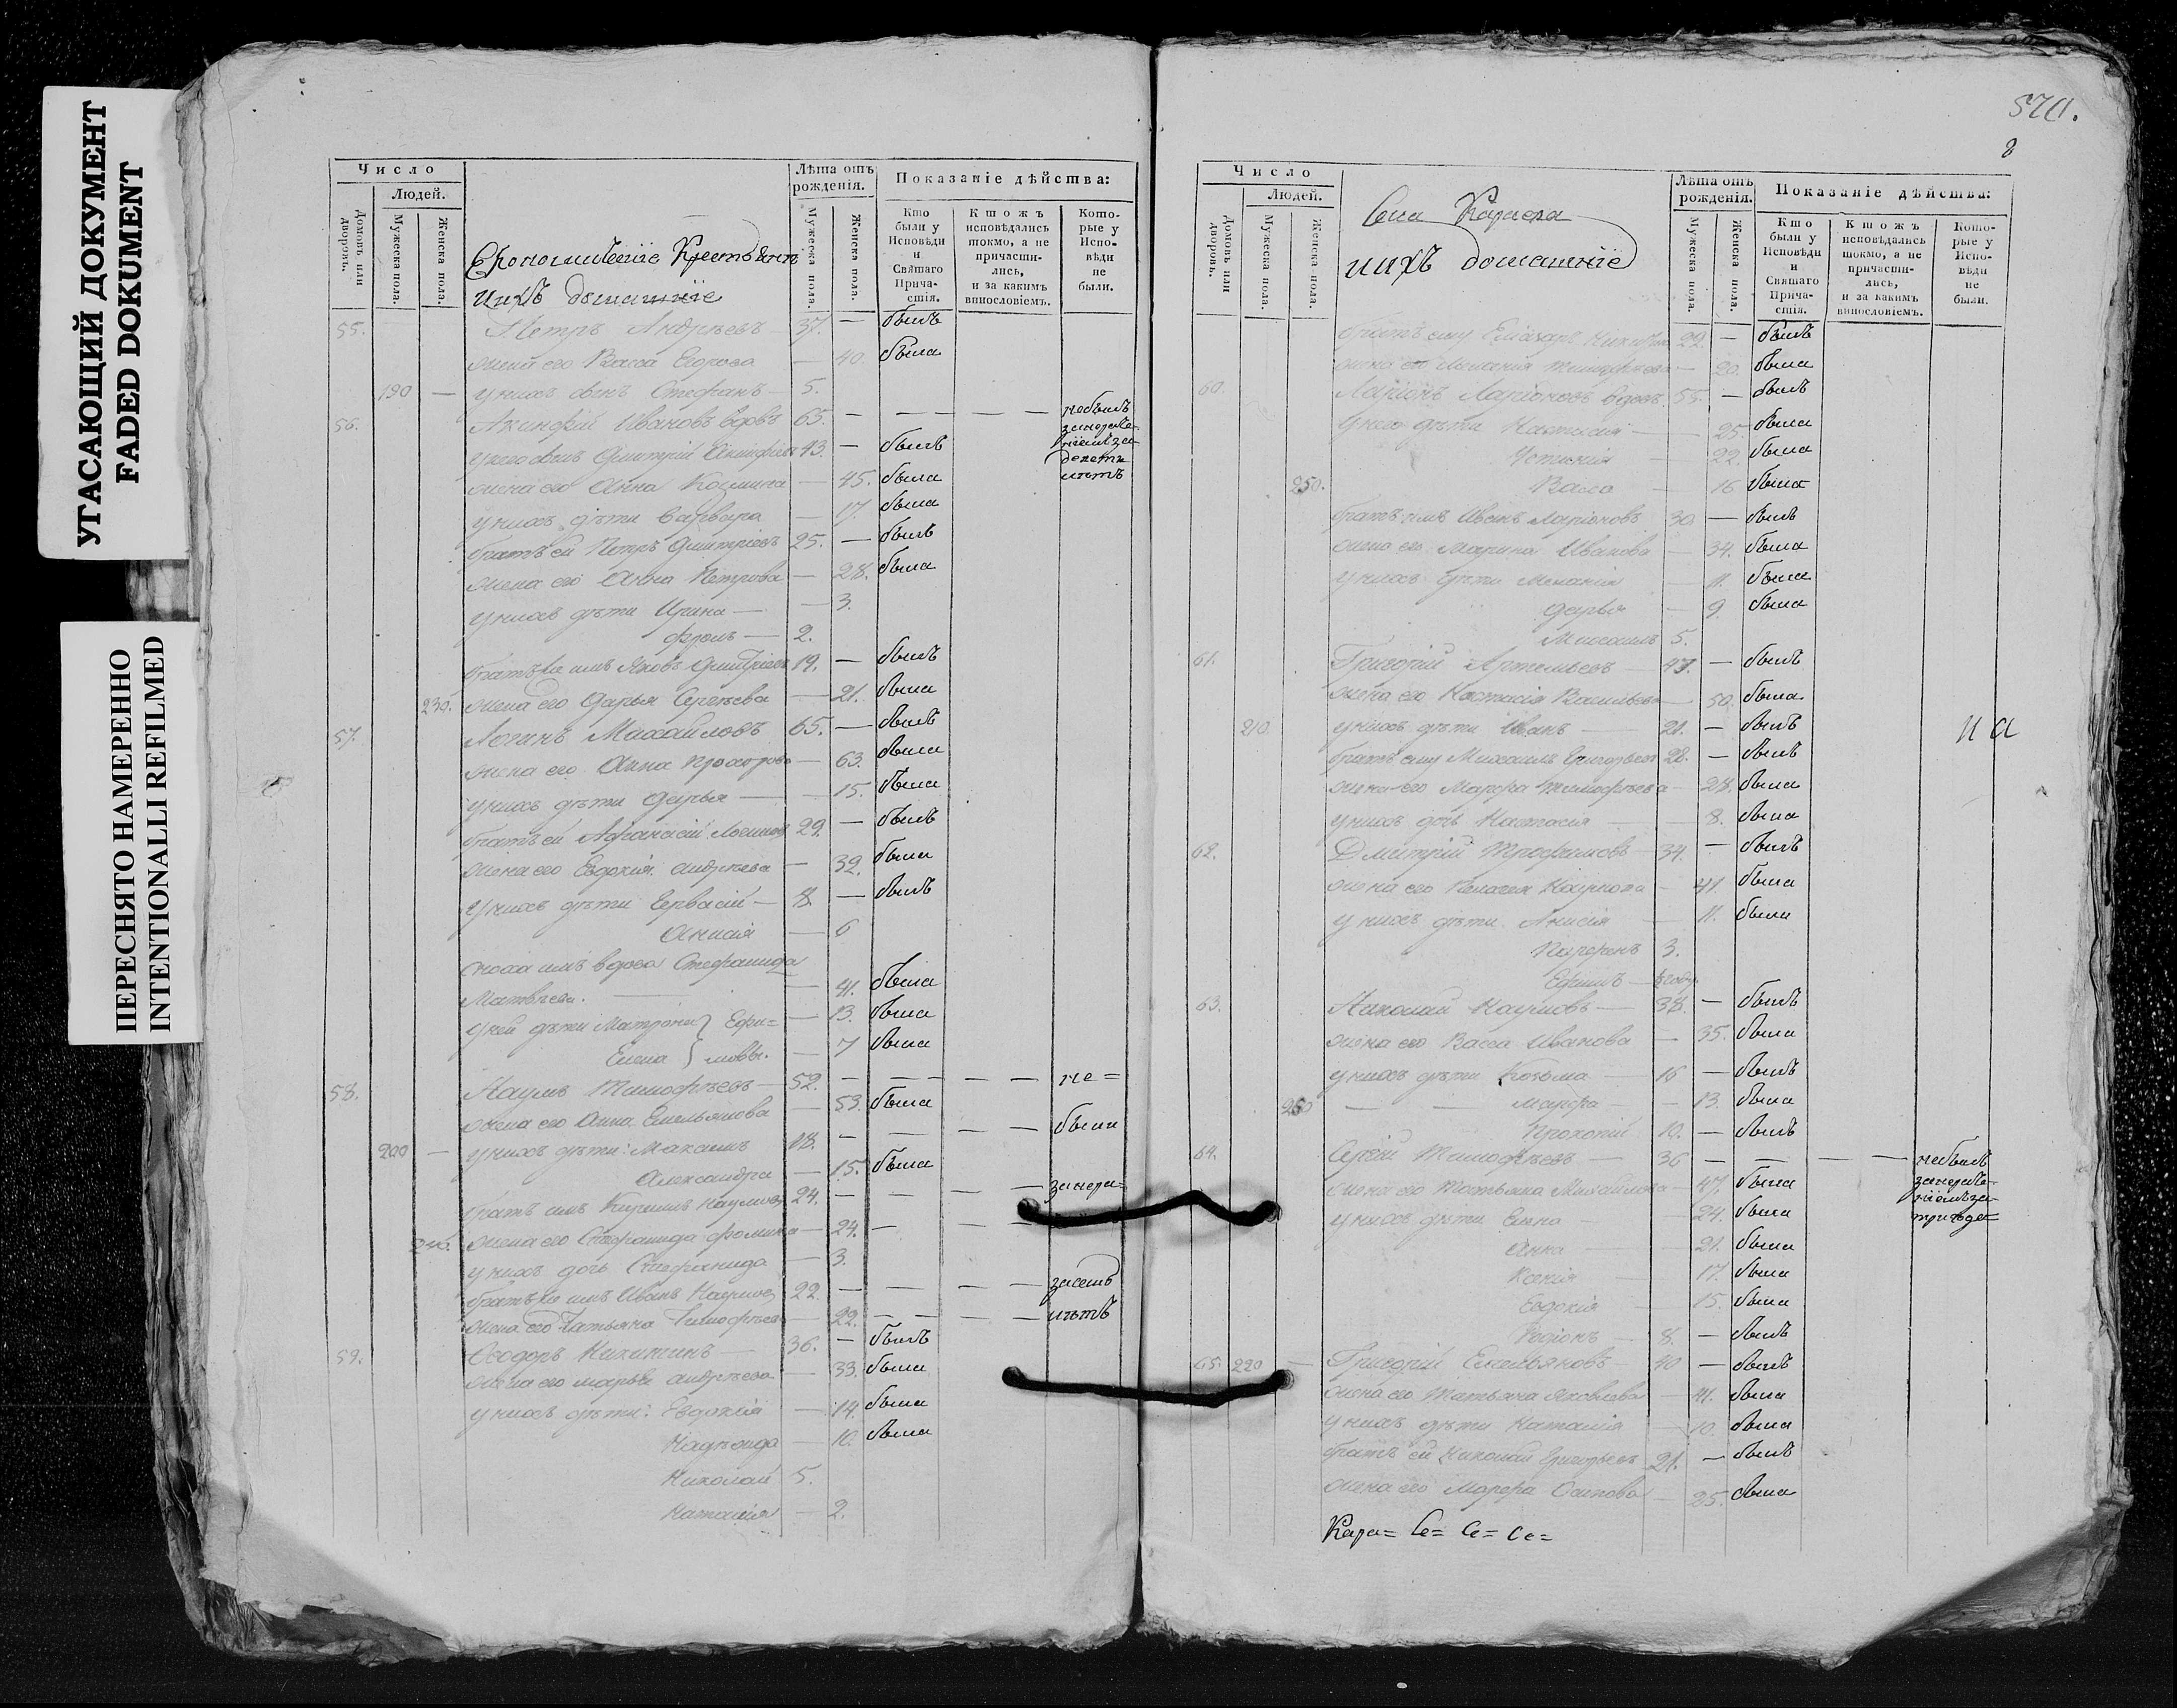 УГАСАЮЩИЙ ДОКУМЕНТ
FADED DOKUMENT
ПЕРЕСНЯТО НАМЕРЕННО
INTENTIONALLI REFILMED
Число
Людей.
Домовъ или дворовъ.
Мужеска пола.
Женска пола.
Крестьяне
ихъ домашніе
Лѣта отъ рожденія.
Мужеска пола.
Женска пола.
Показаніе дѣйства:
Кто были у Исповѣди и Святаго Прича-стія.
Ктожъ исповѣдались токмо, а не причасти-лись, и за какимъ винословіемъ.
Кото-рые у Испо-вѣди не были.
55. Петръ Андреевъ 37. — былъ
жена его Васса Егорова — 40. была
190 — у нихъ сынъ Стефанъ — 5.
56. Акинфій Ивановъ вдовъ 65. — — — — — небылъ
у него сынъ Дмитрій Акинфіевъ 43. — былъ
жена его Анна Козмина — 45. была
у нихъ дѣти Варвара — 17. была
братъ ей Петръ Дмитріевъ 25. — былъ
жена его Анна Петрова — 28. была
у нихъ дѣти Ирина — — 3.
2.
Яковъ Дмитріевъ 19. — былъ
230. жена его Дарья Сергѣева — 21. была
57. Логинъ Михайловъ 65. — былъ
жена его Анна — 63. была
у нихъ дѣти Дарья — — 15. была
братъ ей Афанасій Логиновъ 29. — былъ
жена его Евдокія Андреева — 39. была
у нихъ дѣти Гервасій — 8. — былъ
Анисія — 6
вдова Стефанида
Матвѣева. — 41. была
у ней дѣти Матрона } Ефи=
— 13. была
Елена } мовы. — 7 была
58. Наумъ Тимофѣевъ — 52. — — — — не=
жена его Анна Емельянова — 53. была
200 — у нихъ дѣти: Максимъ 18. — — — — были
Александра — 15. была
братъ имъ Кирилъ Наумовъ 24. — — — — занера=
жена его Стефанида — 24. —
у нихъ дочь Стефанида — 3.
Иванъ Наумовъ 22. — — — —
жена его Татьяна Тимофѣева — 22. — — — —
59. Ѳеодоръ Никитинъ — 36. — былъ
жена его Марья Андреева — 33. была
у нихъ дѣти: Евдокія — 14. была
10. была
Николай 5.
Наталія — 2.
570.
8
Число
Людей.
Домовъ или дворовъ.
Мужеска пола.
Женска пола.
Села
ихъ домашніе
Лѣта отъ рожденія.
Мужеска пола.
Женска пола.
Показаніе дѣйства:
Кто были у Исповѣди и Святаго Прича-стія.
Ктожъ исповѣдались токмо, а не причасти-лись, и за какимъ винословіемъ.
Кото-рые у Испо-вѣди не были.
братъ ему 22. — былъ
жена его Меланія Тимофѣева — 20. была
60. Ларіонъ Ларіоновъ вдовъ 55. — былъ
у него дѣти Настасія — 25. была
Устинія — 22. была
250. Васса — 16 была
братъ имъ Иванъ Ларіоновъ 30. — былъ
жена его Марина Иванова — 34. была
у нихъ дѣти Меланія — 11. была
Дарья — 9. была
Михаилъ 5.
61. Григорій Артемьевъ — 47. — былъ
жена его Настасія Васильева — 50. была
210 у нихъ дѣти Иванъ — 21. — былъ
братъ ему Михаилъ Григорьевъ 28. — былъ
жена его Марфа Тимофѣева — 28. была
у нихъ дочь Настасія — 8. была
62. Дмитрій Трофимовъ — 34. — былъ
жена его Пелагея Наумова — 41 была
у нихъ дѣти Анисія — 11. была
Парфенъ 3.
Ефимъ —
63. Николай Наумовъ — 38. — былъ
жена его Васса Иванова — 35. была
у нихъ дѣти Козьма — 16 — былъ
260 — — Марфа — 13. была
Прокопій 10. — былъ
64. Сергій Тимофѣевъ — 36 — — — — небылъ
жена его Татьяна Михайлова — 47. была
у нихъ дѣти Елена — 24. была
Анна — 21. была
Ксенія — 17. была
Евдокія — 15. была
8. — былъ
65. 220 — Григорій Емельяновъ 40 — былъ
жена его Татьяна Яковлева — 41. была
у нихъ дѣти Наталія — 10. была
братъ ей Николай Григорьевъ 21. — былъ
жена его Марфа Осипова — 25. была